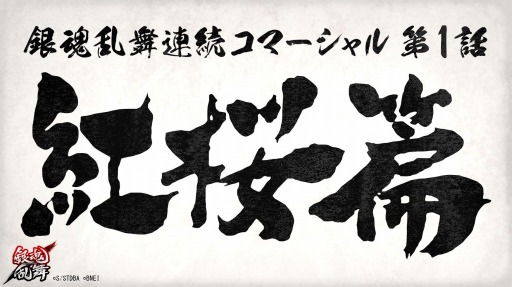 銀魂乱舞連続コマーシャル 第1話
紅桜篇
銀魂
乱舞
©S/STDBA ©BNEI